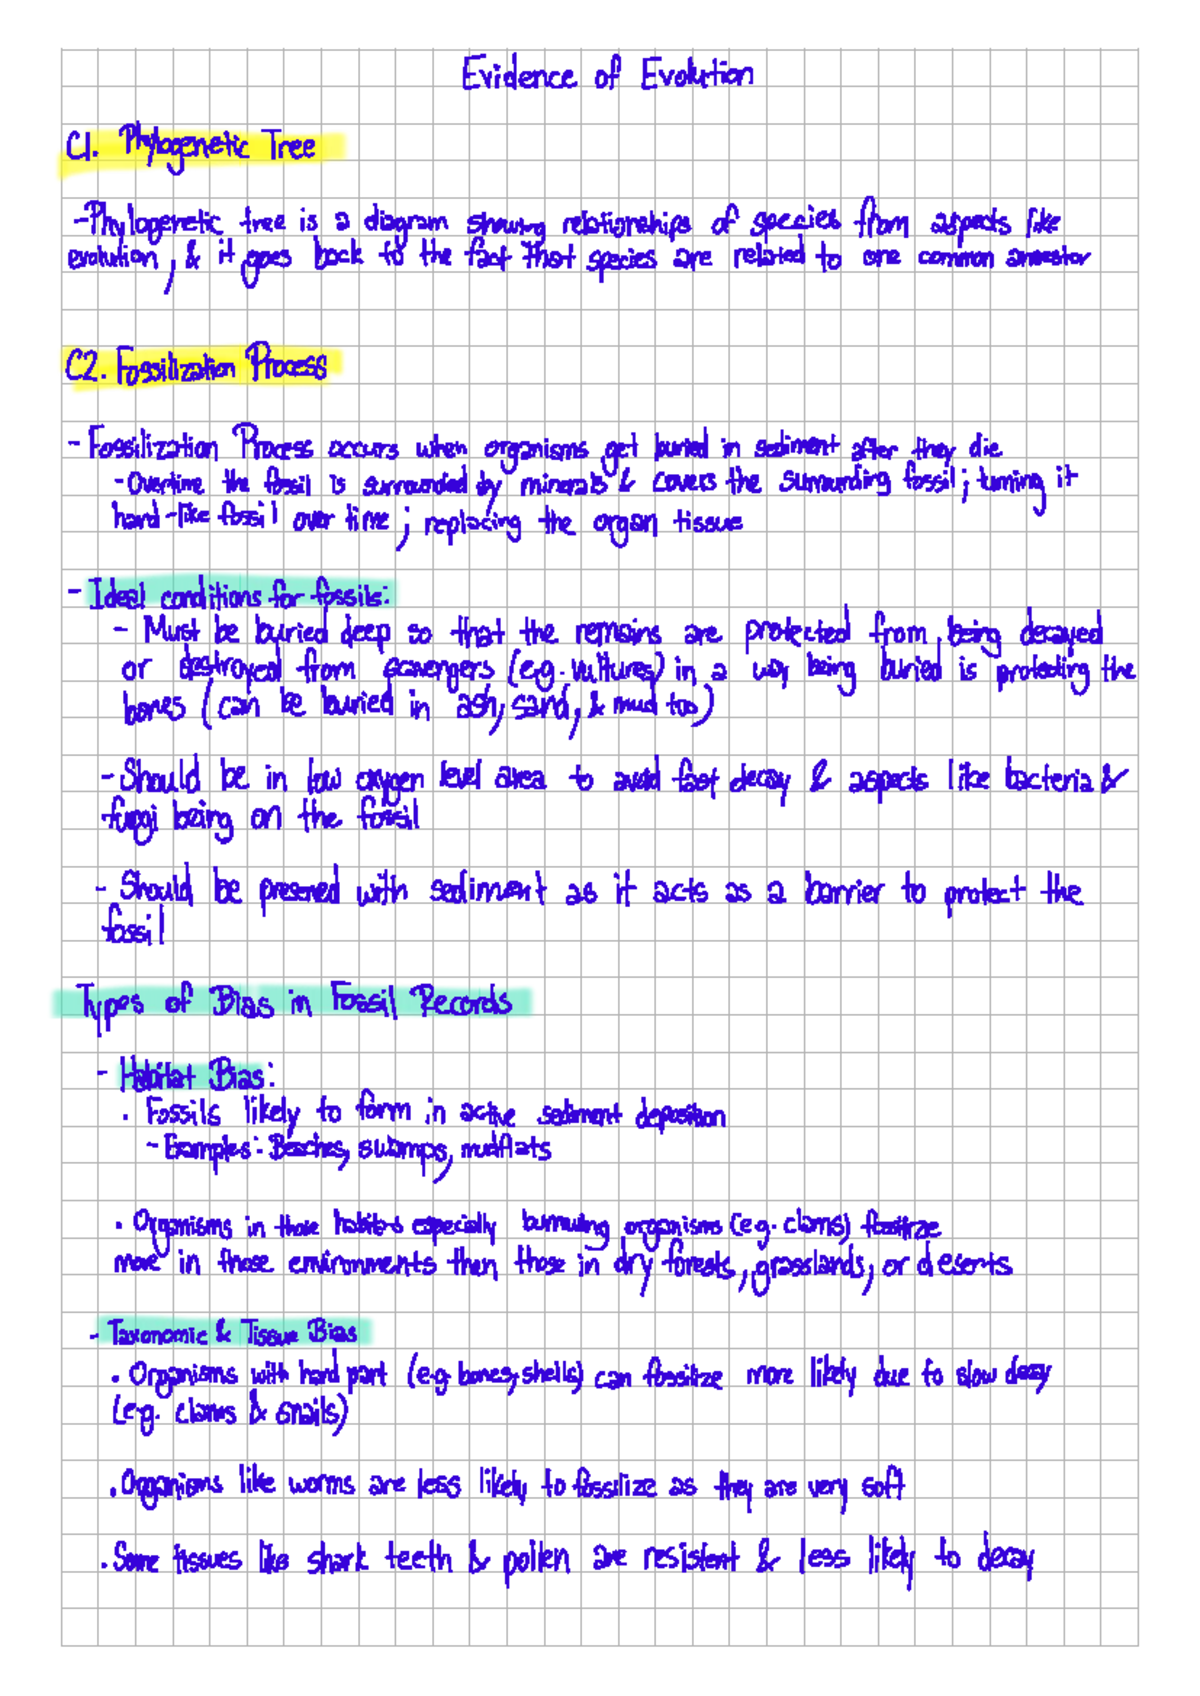 Evidence of Evolution
C1. Phylogenetic Tree
-Phylogenetic tree is a diagram showing relationships of species from aspects like
evolution, & it goes back to the fact that species are related to one common ancestor
C2. Fossilization Process
- Fossilization Process occurs when organisms get buried in sediment after they die
-Overtime the fossil is surrounded by minerals & covers the surrounding fossil; turning it
hard-like fossil over time; replacing the organ tissue
- Ideal conditions for fossils:
- Must be buried deep so that the remains are protected from being decayed
or destroyed from scavengers (e.g. vultures) in a way being buried is protecting the
bones (can be buried in ash, sand, & mud too)
- Should be in low oxygen level area to avoid fast decay & aspects like bacteria &
fungi being on the fossil
- Should be preserved with sediment as it acts as a barrier to protect the
fossil
Types of Bias in Fossil Records
- Habitat Bias:
. Fossils likely to form in active sediment deposition
- Examples: Beaches, swamps, mudflats
. Organisms in those habitats especially burrowing organisms (e.g. clams) fossilize
more in those environments then those in dry forests, grasslands, or deserts
- Taxonomic & Tissue Bias
. Organisms with hard part (e.g. bones, shells) can fossilize more likely due to slow decay
(e.g. clams & snails)
. Organisms like worms are less likely to fossilize as they are very soft
. Some tissues like shark teeth & pollen are resistent & less likely to decay